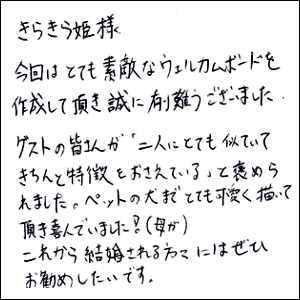 きらきら姫様
今回はとても素敵なウェルカムボードを
作成して頂き誠に有難うございました.
ゲストの皆さんが「二人にとても似ていて
きちんと特徴をおさえている」と褒めら
れました。ペットの犬までとても可愛く描いて
頂き喜んでいました!(母が)
これから結婚される方々にはぜひ
お勧めしたいです。